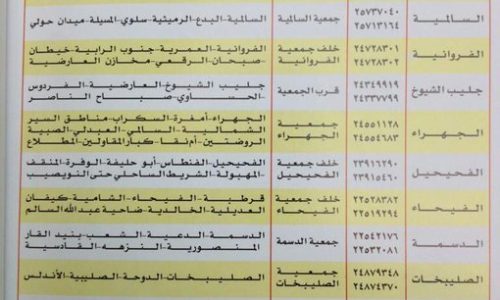 السالمية ٢٥٧٣٧٠٤٠ جمعية السالمية السالمية-البدع-الرميثية-سلوى-المسيلة-ميدان حولي
٢٥٧١٣١٦٤
الفروانية ٢٤٧٢٨٣٠١ خلف جمعية الفروانية-العمرية-جنوب الرابية-خيطان
٢٤٧٢٨٣٠٢ الفروانية -صبحان-الرقعي-مخازن العارضية
جليب الشيوخ ٢٤٣٤٩٩١٩ قرب الجمعية جليب الشيوخ-العارضية-الفردوس
٢٤٣٣٧٧٩٩ -الحساوي-صباح الناصر
الجهراء ٢٤٥٥١١٢٨ جمعية الجهراء-أمغرة-السكراب-مناطق السير
٢٤٥٥٤٦٨٣ الجهراء الشمالية-السالمي-العبدلي-الصبية
الروضتين-أم نقا-كبار المقاولين-المطلاع
الفحيحيل ٢٣٩١٦٢٩٠ خلف جمعية الفحيحيل-الفنطاس-أبو حليفة-الوفرة-المنقف
٢٣٩١٥٤٦٠ الفحيحيل -المهبولة-الشريط الساحلي حتى النويصيب
الفيحاء ٢٢٥٢٨٣٨٢ خلف جمعية قرطبة-الفيحاء-الشامية-كيفان
٢٢٥١٩٢٩٤ الفيحاء العديلية-الخالدية-ضاحية عبدالله السالم
الدسمة ٢٢٥٤٢١٧٦ جمعية الدسمة الدسمة-الدعية-الشعب-بنيد القار
٢٢٥٣٢٠٨١ المنصورية-النزهه-القادسية
الصليبخات ٢٤٨٧٩٣٤٨ جمعية الصليبخات-الدوحة-الصليبية-الأندلس
٢٤٨٧٤٣٧٠ الصليبخات